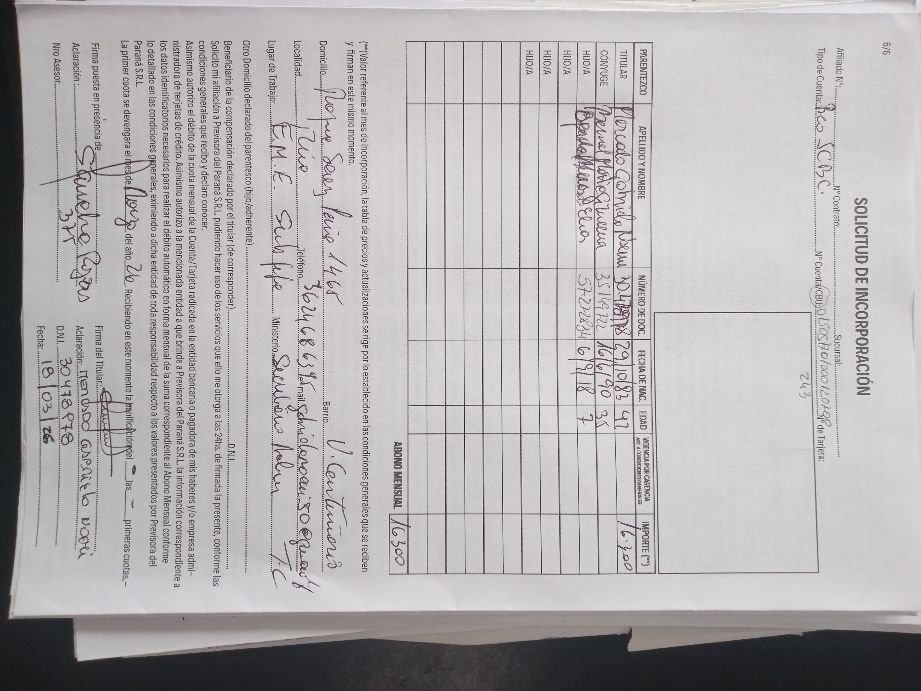 6/6
SOLICITUD DE INCORPORACIÓN
Afiliado N°: N° Contrato: Sucursal:
Tipo de Cuenta: N° Cuenta/CBU: de Tarjeta:
243
PARENTEZCO APELLIDO Y NOMBRE NÚMERO DE DOC. FECHA DE NAC. EDAD VIGENCIA POR CARENCIA IMPORTE (**)
TITULAR Mercado Gabriela Noemi 29/10/83 42 16.300
CONYUGE 35 16/6/90 35
HIJO/A 57222834 6/9/18 7
HIJO/A
HIJO/A
HIJO/A
HIJO/A
ABONO MENSUAL 16300
(**)Valor referente al mes de incorporación, la tabla de precios y actualizaciones se rige por lo establecido en las condiciones generales que se reciben
y firman en este mismo momento.
Domicilio Roque Saenz Peña 1465 Barrio V. Centenario
Localidad Teléfono 3624686395 Email
Lugar de Trabajo: E.M.E. Ministerio
Otro Domicilio declarado del parentesco (hijo/adherente)
Beneficiario de la compensación declarado por el titular (de corresponder) D.N.I.
Solicito mi afiliación a Previsora del Paraná S.R.L. pudiendo hacer uso de los servicios que ello me otorga a las 24hs. de firmada la presente, conforme las
condiciones generales que recibo y declaro conocer.
Asimismo autorizo el débito de la cuota mensual de la Cuenta/Tarjeta radicada en la entidad bancaria o pagadora de mis haberes y/o empresa admi-
nistradora de tarjetas de crédito. Asimismo autorizo a la mencionada entidad a que brinde a Previsora del Paraná S.R.L. la información correspondiente a
los datos identificatorios necesarios para realizar el débito automático en forma mensual de la suma correspondiente al Abono Mensual conforme
lo detallado en las condiciones generales, eximiendo a dicha entidad de toda responsabilidad respecto a los valores presentados por Previsora del
Paraná S.R.L.
La primer cuota se devengara el mes de Mayo del año 26 Recibiendo en este momento la bonificación de - las - primeras cuotas.-
Firma puesta en presencia de Firma del Titular:
Aclaración: Aclaración: Mercado Gabriela Noemi
Nro Asesor: 371 D.N.I. 30478978
Fecha: 18/03/26